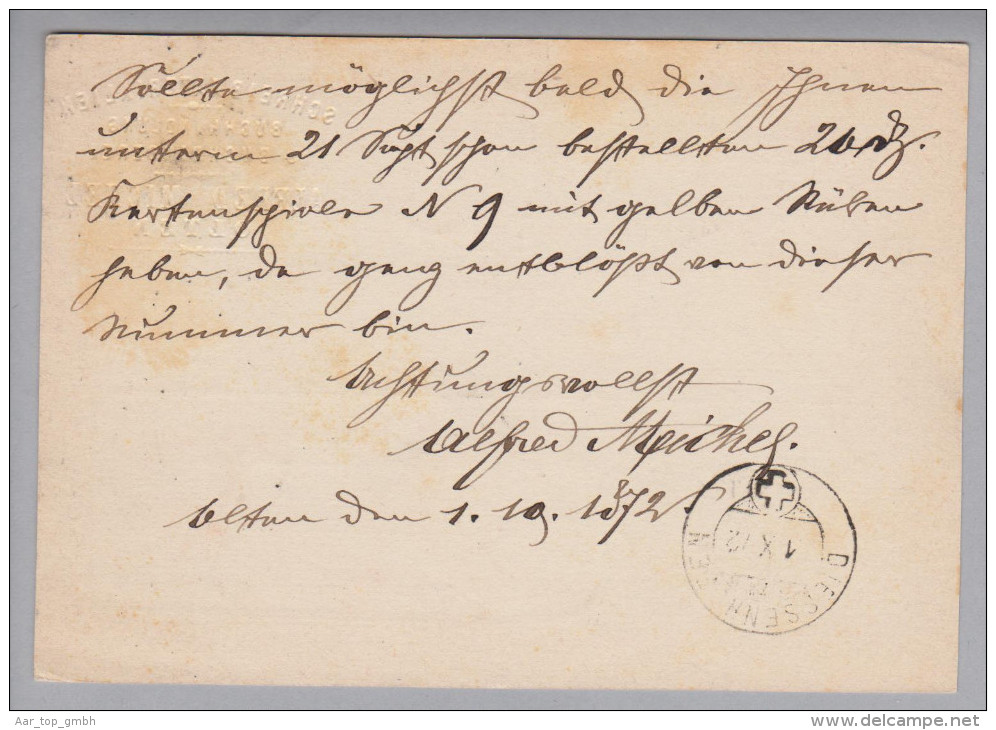 Sollte möglichst bald die Ihnen
unterm 21 Sept schon bestellten 26 Dz.
Kartenspiele N 9 mit gelben Rüken
haben, da ganz entblößt von dieser
Nummer bin.
Achtungsvollst
Alfred Michel.
Olten den 1. 10. 1872
DIESSENHOFEN
1 X 72
Aar_top_gmbh
www.delcampe.net